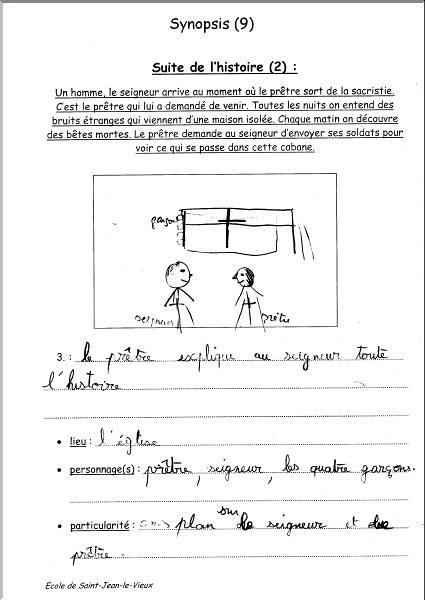 Synopsis (9)
Suite de l'histoire (2) :
Un homme, le seigneur arrive au moment où le prêtre sort de la sacristie.
C'est le prêtre qui lui a demandé de venir. Toutes les nuits on entend des
bruits étranges qui viennent d'une maison isolée. Chaque matin on découvre
des bêtes mortes. Le prêtre demande au seigneur d'envoyer ses soldats pour
voir ce qui se passe dans cette cabane.
garçons
seigneur prêtre
3. : le prêtre explique au seigneur toute
l'histoire
• lieu : l'église
• personnage(s) : prêtre, seigneur, les quatre garçons.
• particularité : plan sur le seigneur et
prêtre.
Ecole de Saint-Jean-le-Vieux